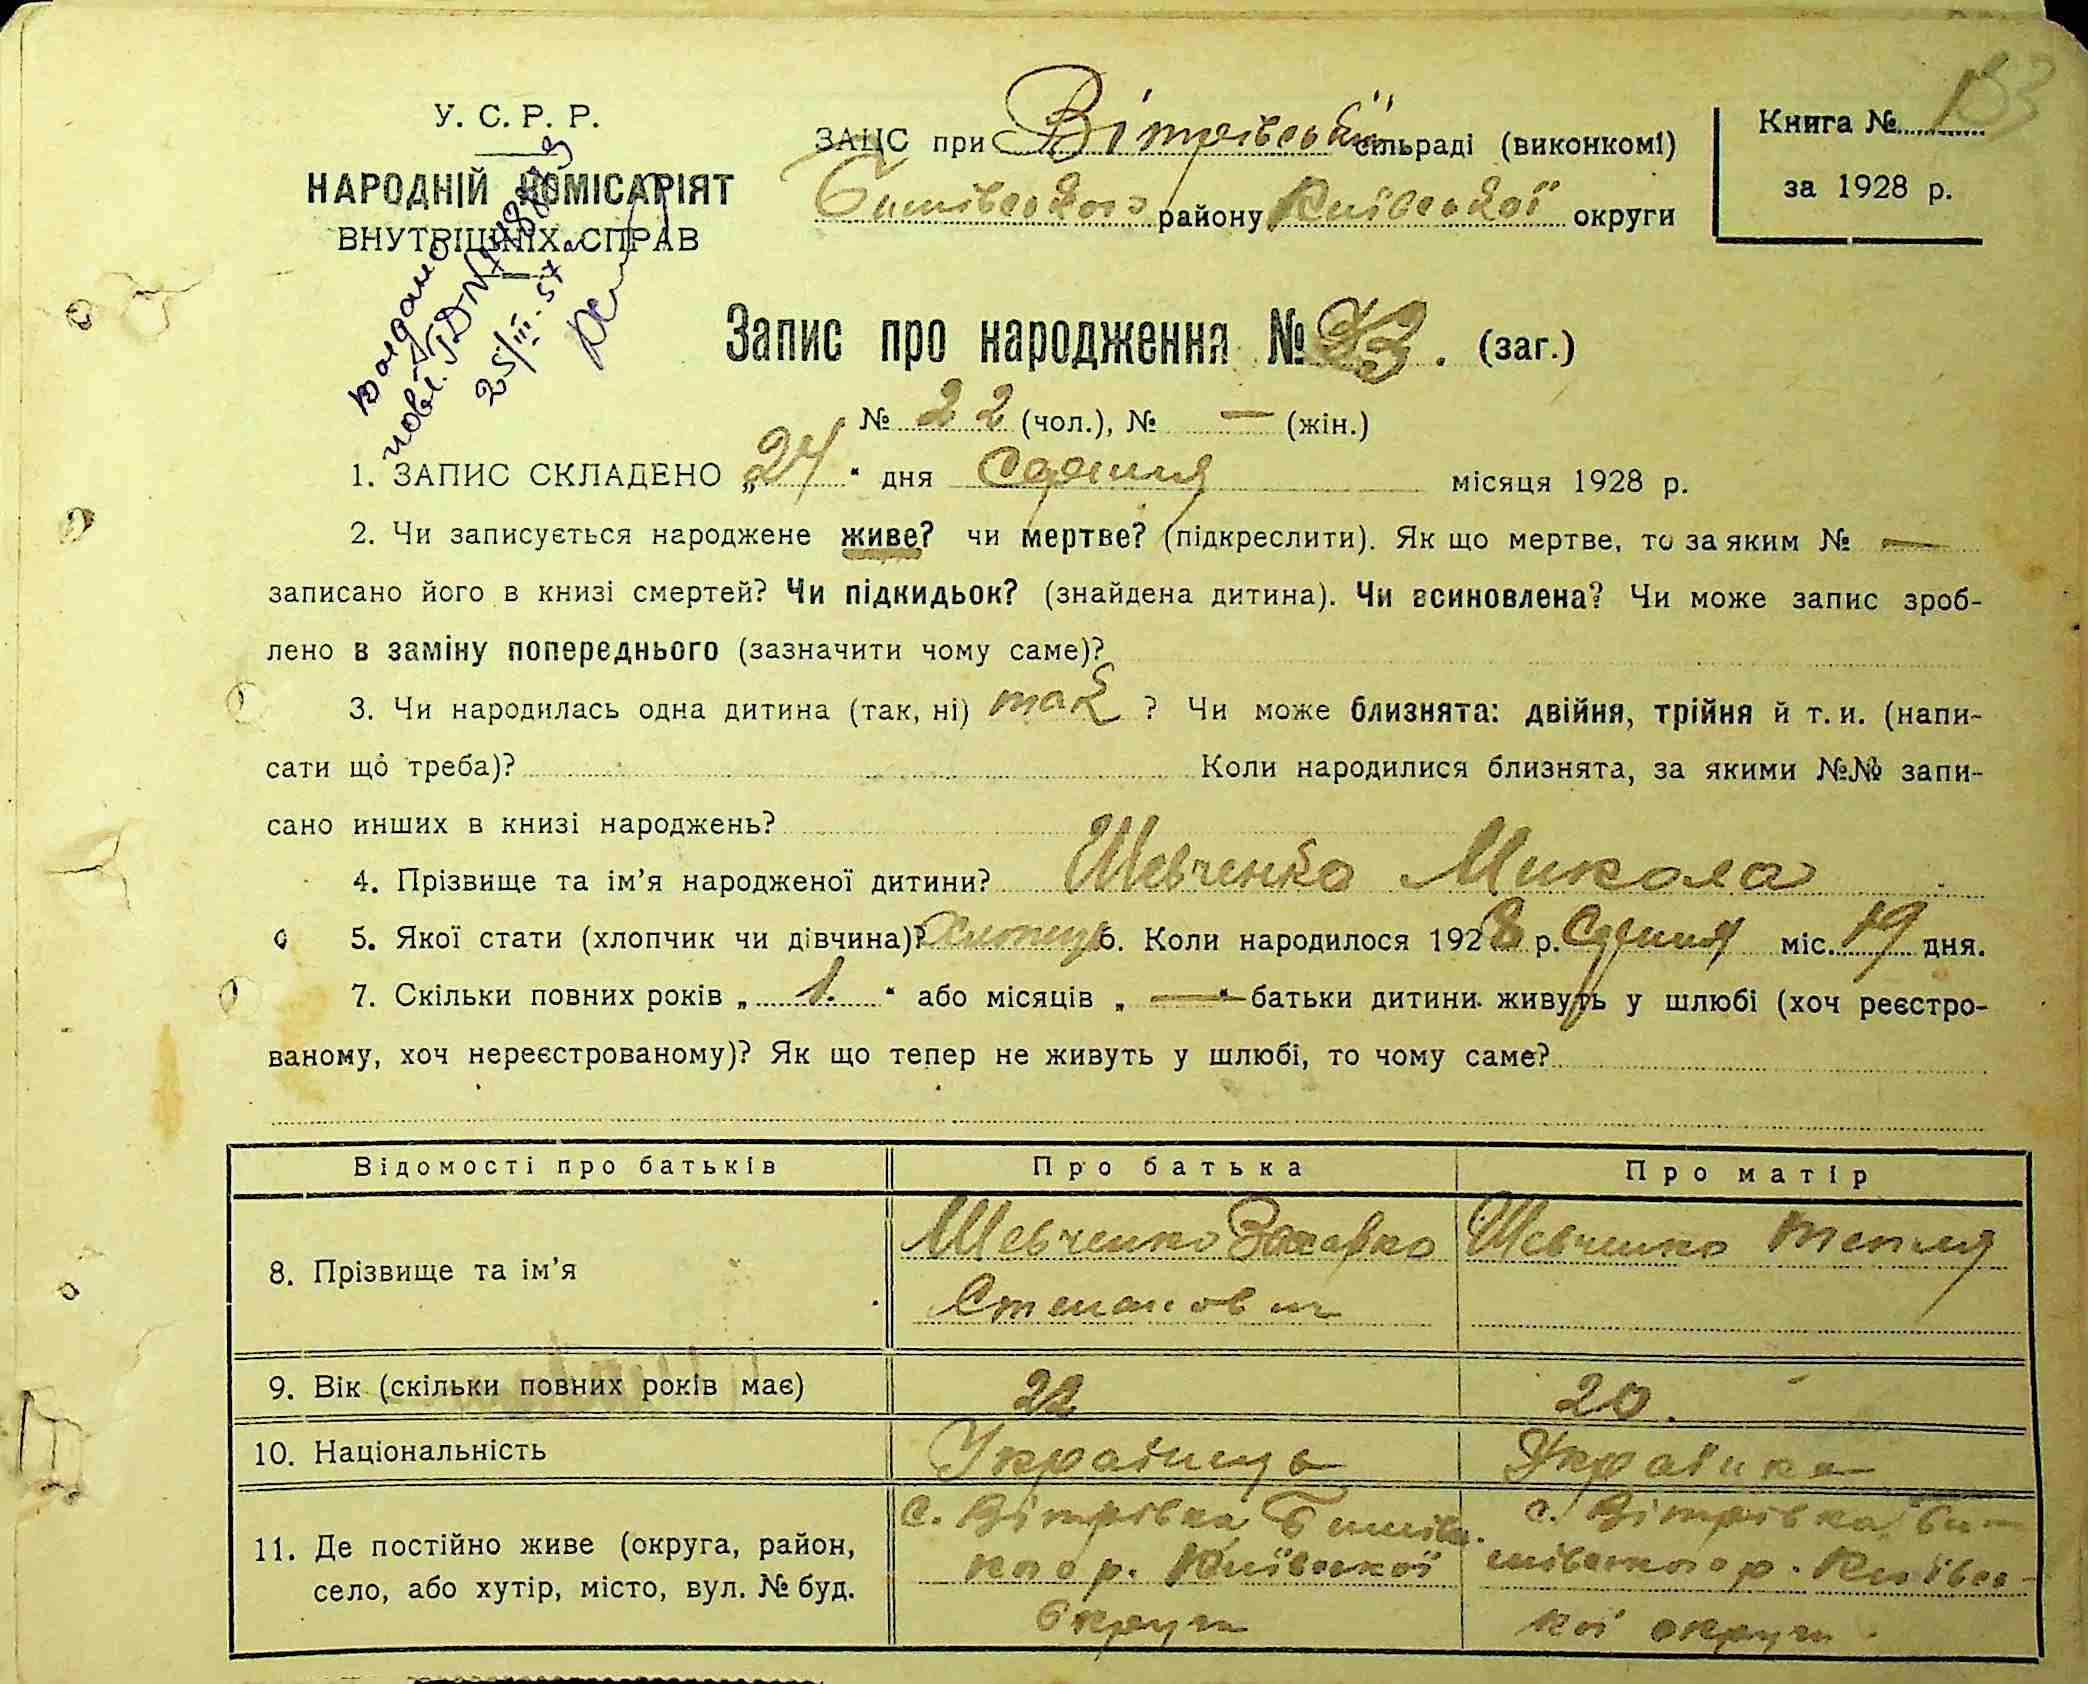 У. С. Р. Р.
НАРОДНІЙ КОМІСАРІЯТ
ВНУТРІШНІХ СПРАВ
Видано
повт.
25/III-57
ЗАЦС при Вітрівській сільраді (виконкомі)
Бишівського району Київської округи
Книга №
за 1928 р.
133
Запис про народження № 33. (заг.)
№ 22 (чол.), № — (жін.)
1. ЗАПИС СКЛАДЕНО „24“ дня Серпня місяця 1928 р.
2. Чи записується народжене живе? чи мертве? (підкреслити). Як що мертве, то за яким № —
записано його в книзі смертей? Чи підкидьок? (знайдена дитина). Чи всиновлена? Чи може запис зроб-
лено в заміну попереднього (зазначити чому саме)?
3. Чи народилась одна дитина (так, ні) так ? Чи може близнята: двійня, трійня й т. и. (напи-
сати що треба)? Коли народилися близнята, за якими №№ запи-
сано инших в книзі народжень?
4. Прізвище та ім’я народженої дитини? Шевченко Микола
5. Якої стати (хлопчик чи дівчина)? Хлопець 6. Коли народилося 1928 р. Серпня міс. 19 дня.
7. Скільки повних років „ 1. “ або місяців „ — “ батьки дитини живуть у шлюбі (хоч реєстро-
ваному, хоч нереєстрованому)? Як що тепер не живуть у шлюбі, то чому саме?
Відомості про батьків Про батька Про матір
8. Прізвище та ім’я Шевченко Захарко Степанович Шевченко Текля
9. Вік (скільки повних років має) 22 20.
10. Національність Українець Українка
11. Де постійно живе (округа, район,
село, або хутір, місто, вул. № буд.
с. Вітрівка Бишівс.
кого р. Київської
округи
с. Вітрівка Би-
шівського р. Київсь-
кої округи.